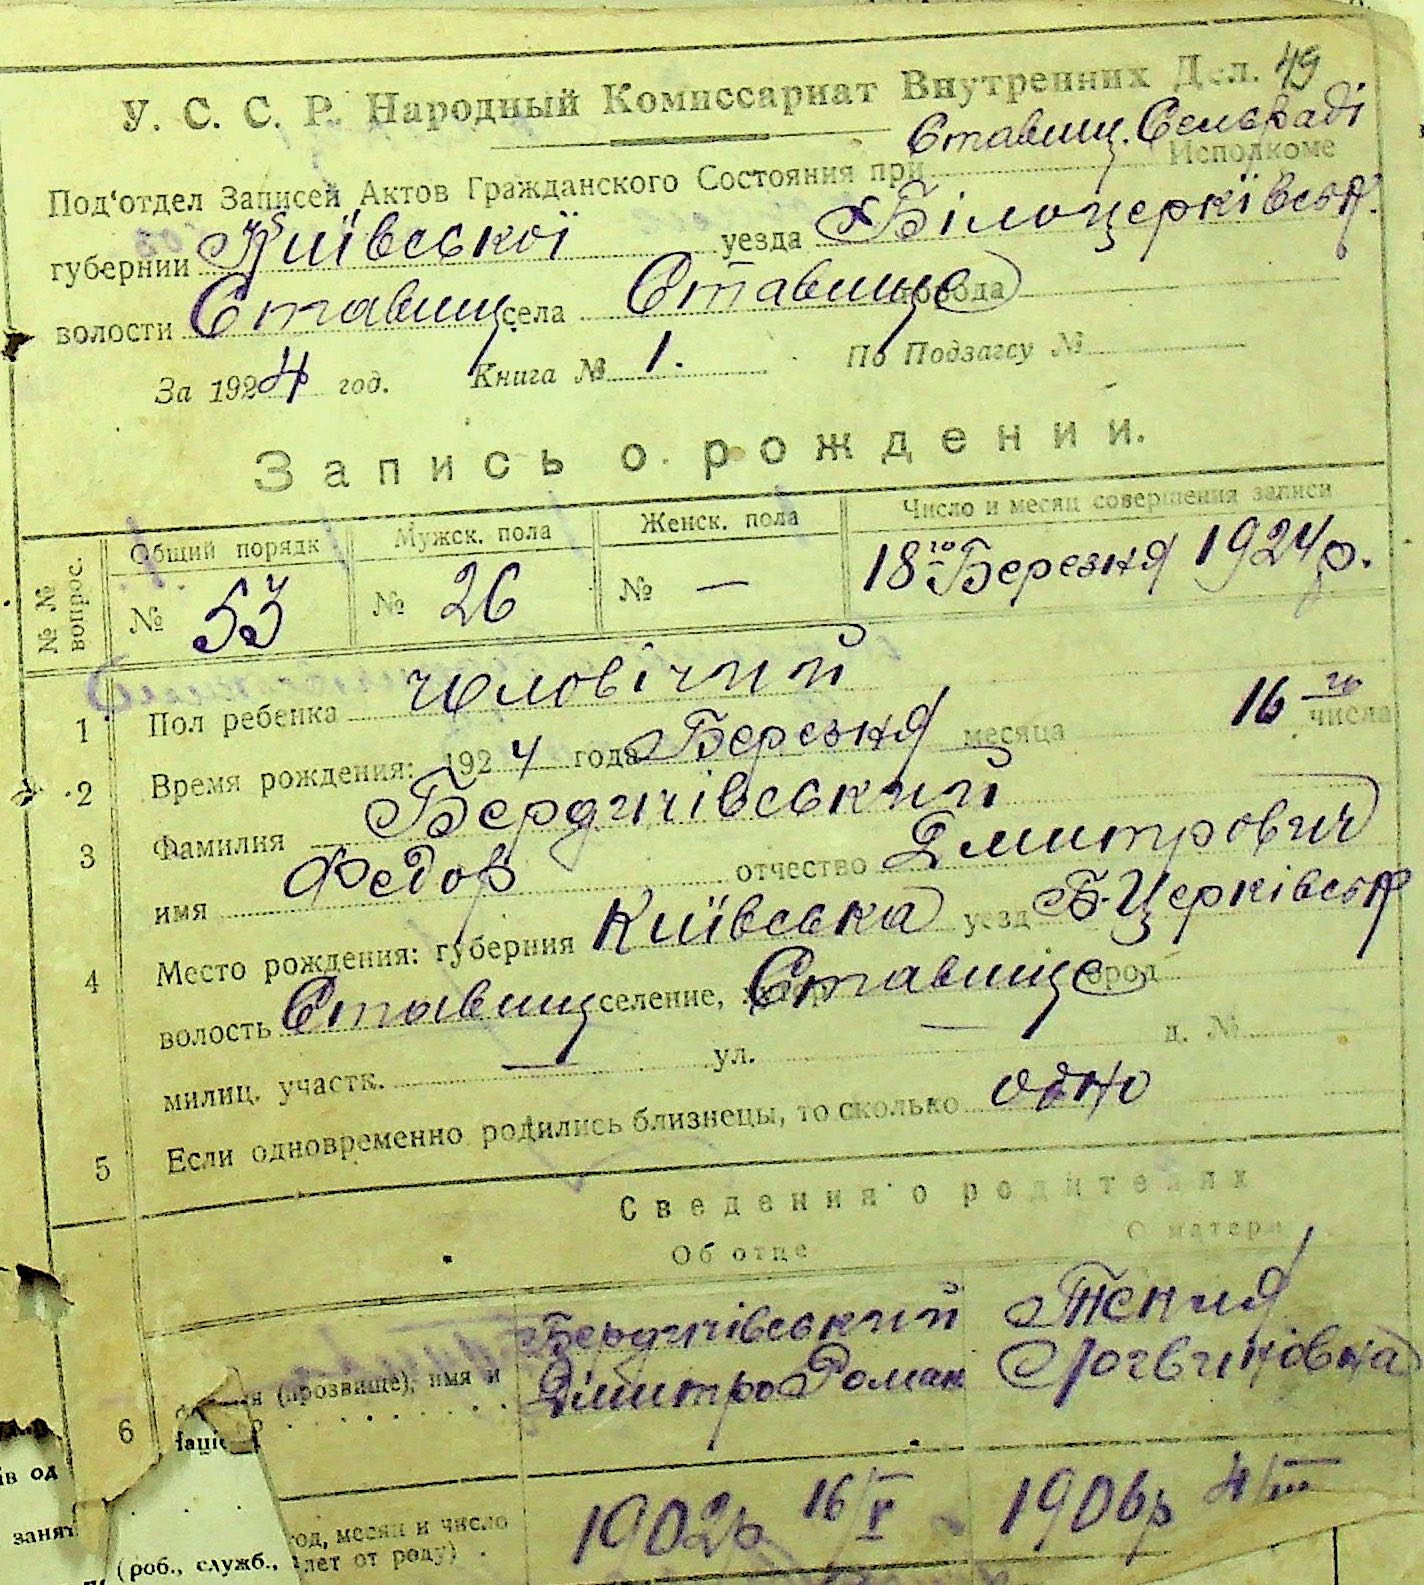 49
У. С. С. Р. Народный Комиссариат Внутренних Дел.
Ставищ. Сельраді
Под'отдел Записей Актов Гражданского Состояния при Исполкоме
губернии Київської уезда Білоцерківськ.
волости Ставищ. села Ставище города
За 1924 год. Книга № 1. По Подзагсу №
Запись о рождении.
№ № вопрос. Общий порядк Мужск. пола Женск. пола Число и месяц совершения записи
№ 53 № 26 № — 18го Березня 1924 р.
1 Пол ребенка чоловічий
2 Время рождения: 1924 года Березня месяца 16го числа
3 Фамилия Бердичівський
имя Федор отчество Дмитрович
4 Место рождения: губерния Київська уезд Б-Церківськ
волость Ставищ селение, хутор Ставище город
милиц. участк. — ул. — д. №
5 Если одновременно родились близнецы, то сколько одно
Сведения о родителях
Об отце О матери
Бердичівський Тения
6 (прозвище), имя и Дмитро Роман Логвиновна
1902 р 16/V 1906 р 4/III
год, месяц и число
ів од
занят
(роб., служб., лет от роду)